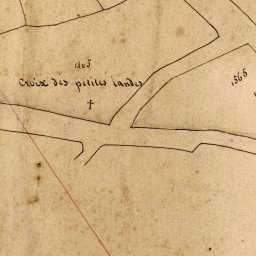 Croix des petites landes
1565